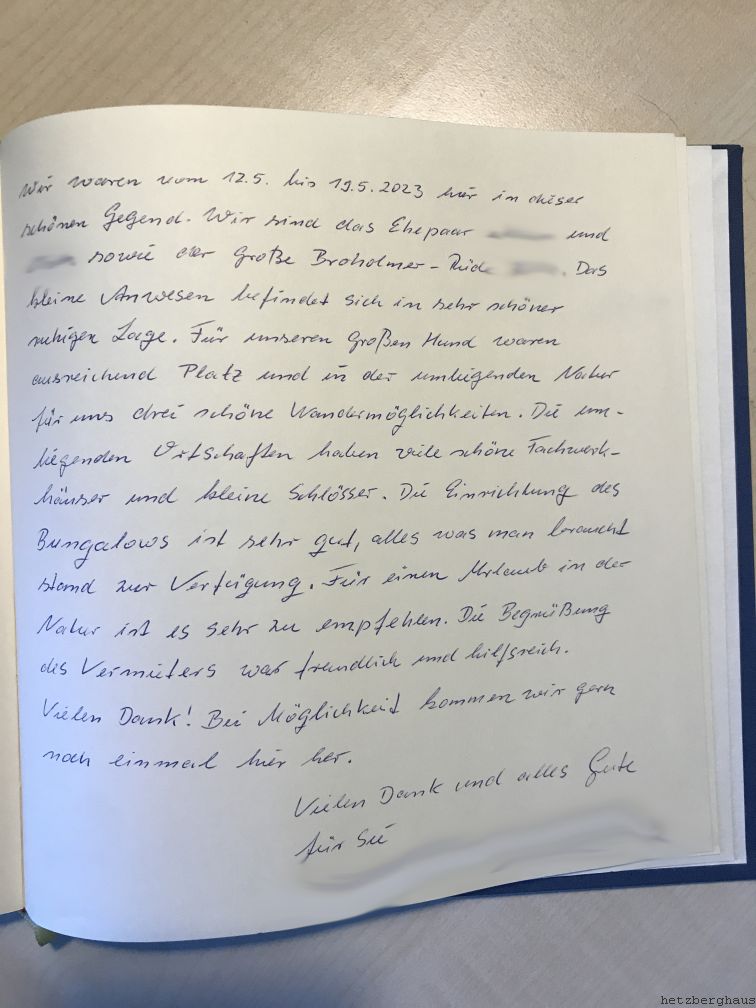 Wir waren vom 12.5. bis 19.5.2023 hier in dieser
schönen Gegend. Wir sind das Ehepaar und
sowie der große Broholmer-Rüde . Das
kleine Anwesen befindet sich in sehr schöner
ruhigen Lage. Für unseren großen Hund waren
ausreichend Platz und in der umliegenden Natur
für uns drei schöne Wandermöglichkeiten. Die um-
liegenden Ortschaften haben viele schöne Fachwerk-
häuser und kleine Schlösser. Die Einrichtung des
Bungalows ist sehr gut, alles was man braucht
stand zur Verfügung. Für einen Urlaub in der
Natur ist es sehr zu empfehlen. Die Begrüßung
des Vermieters war freundlich und hilfsreich.
Vielen Dank! Bei Möglichkeit kommen wir gern
noch einmal hier her.
Vielen Dank und alles Gute
für Sie
hetzberghaus